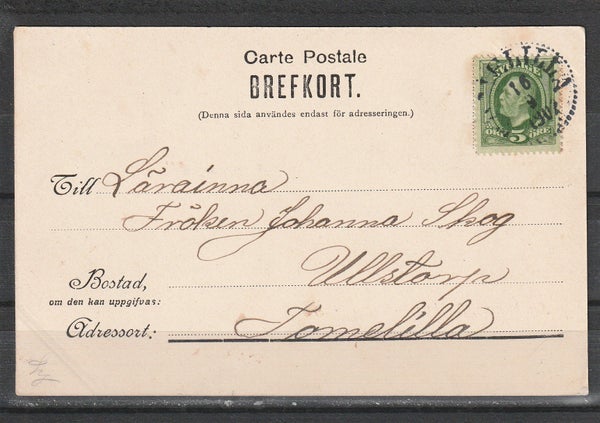 Carte Postale
BREFKORT.
(Denna sida användes endast för adresseringen.)
Till Lärainna
Fröken Johanna Skog
Bostad, Ullstorp
om den kan uppgifvas:
Adressort: Tomelilla
5 ÖRE